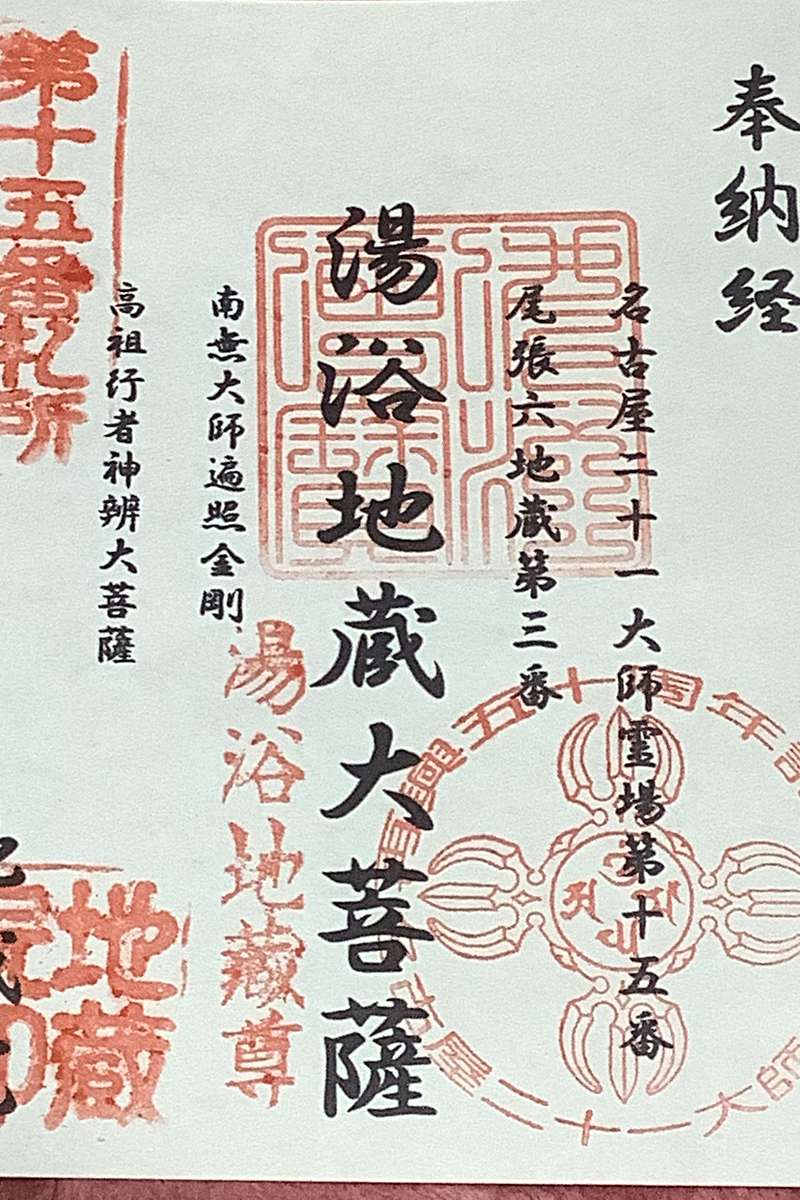 奉納経
名古屋二十一大師霊場第十五番
尾張六地蔵第三番
湯浴地蔵大菩薩
湯浴地蔵尊
南無大師遍照金剛
高祖行者神辨大菩薩
第十五番札所
地蔵
五十周年
古屋二十一大師